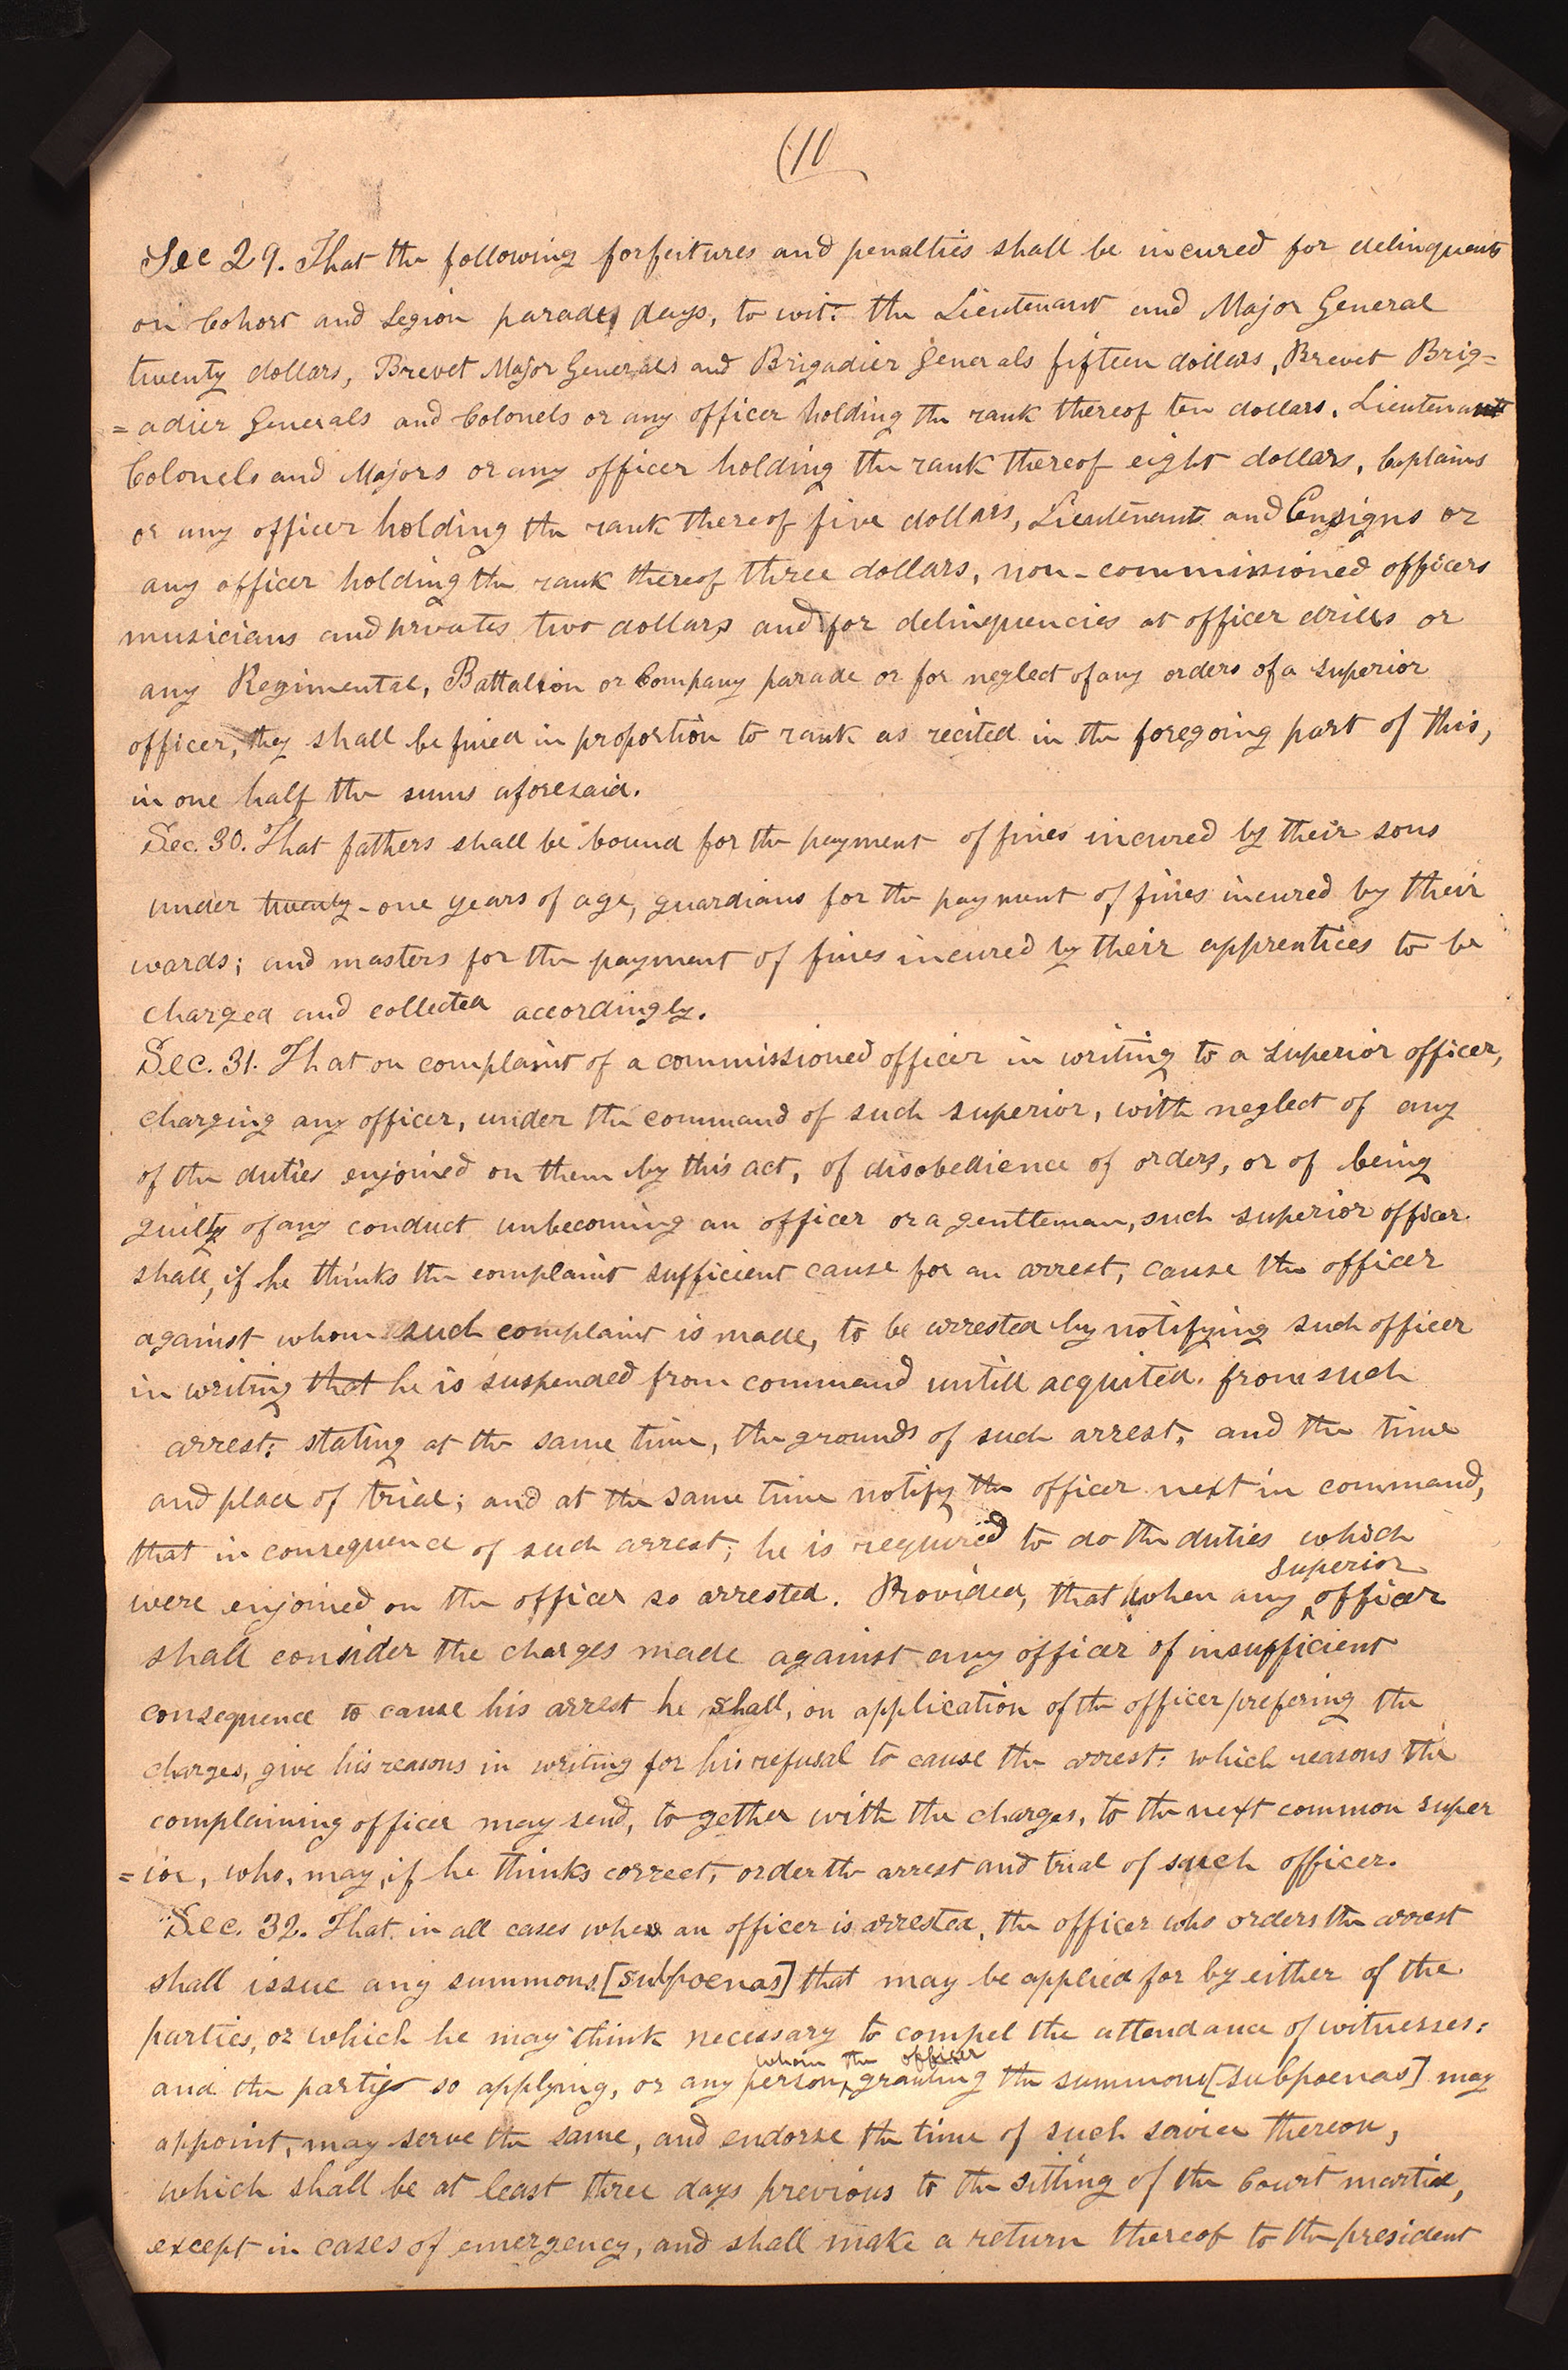 (10
Sec 29. That the following forfeitures and penalties shall be incured for delinquents
on Cohort and Legion parade days, to wit: the Lieutenant and Major General
twenty dollars, Brevet Major Generals and Brigadier Generals fifteen dollars, Brevet Brig-
=adier Generals and Colonels or any officer holding the rank thereof ten dollars. Lieutenant
Colonels and Majors or any officer holding the rank thereof eight dollars, Captains
or any officer holding the rank thereof five dollars, Lieutenants and Ensigns or
any officer holding the rank thereof three dollars, non-commissioned officers
musicians and privates two dollars and for delinquencies at officer drills or
any Regimental, Battalion or Company parade or for neglect of any orders of a superior
officer, they shall be fined in proportion to rank as recited in the foregoing part of this,
in one half the sums aforesaid.
Sec. 30. That fathers shall be bound for the payment of fines incured by their sons
under twenty-one years of age, guardians for the payment of fines incured by their
wards; and masters for the payment of fines incured by their apprentices to be
charged and collected accordingly.
Sec. 31. That on complaint of a commissioned officer in writing to a superior officer,
charging any officer, under the command of such superior, with neglect of any
of the duties enjoined on them by this act, of disobedience of orders, or of being
guilty of any conduct unbecoming an officer or a gentleman, such superior officer
shall, if he thinks the complaint sufficient cause for an arrest, cause the officer
against whom such complaint is made, to be arrested by notifying such officer
in writing that he is suspended from command untill acquited from such
arrest; stating at the same time, the grounds of such arrest, and the time
and place of trial; and at the same time notify the officer next in command,
that in consequence of such arrest; he is required to do the duties which
were enjoined on the officer so arrested. Provided, that when any superior officer
shall consider the charges made against any officer of insufficient
consequence to cause his arrest he shall, on application of the officer prefering the
charges, give his reasons in writing for his refusal to cause the arrest: which reasons the
complaining officer may send, together with the charges, to the next common super
=ior, who, may, if he thinks correct, order the arrest and trial of such officer.
Sec. 32. That in all cases when an officer is arrested, the officer who orders the arrest
shall issue any summons [subpoenas] that may be applied for by either of the
parties, or which he may think necessary to compel the attendance of witnesses:
and the partys so applying, or any person, whom the officer granting the summons [subpoenas] may
appoint, may serve the same, and endorse the time of such service thereon,
which shall be at least three days previous to the sitting of the Court martial,
except in cases of emergency, and shall make a return thereof to the president